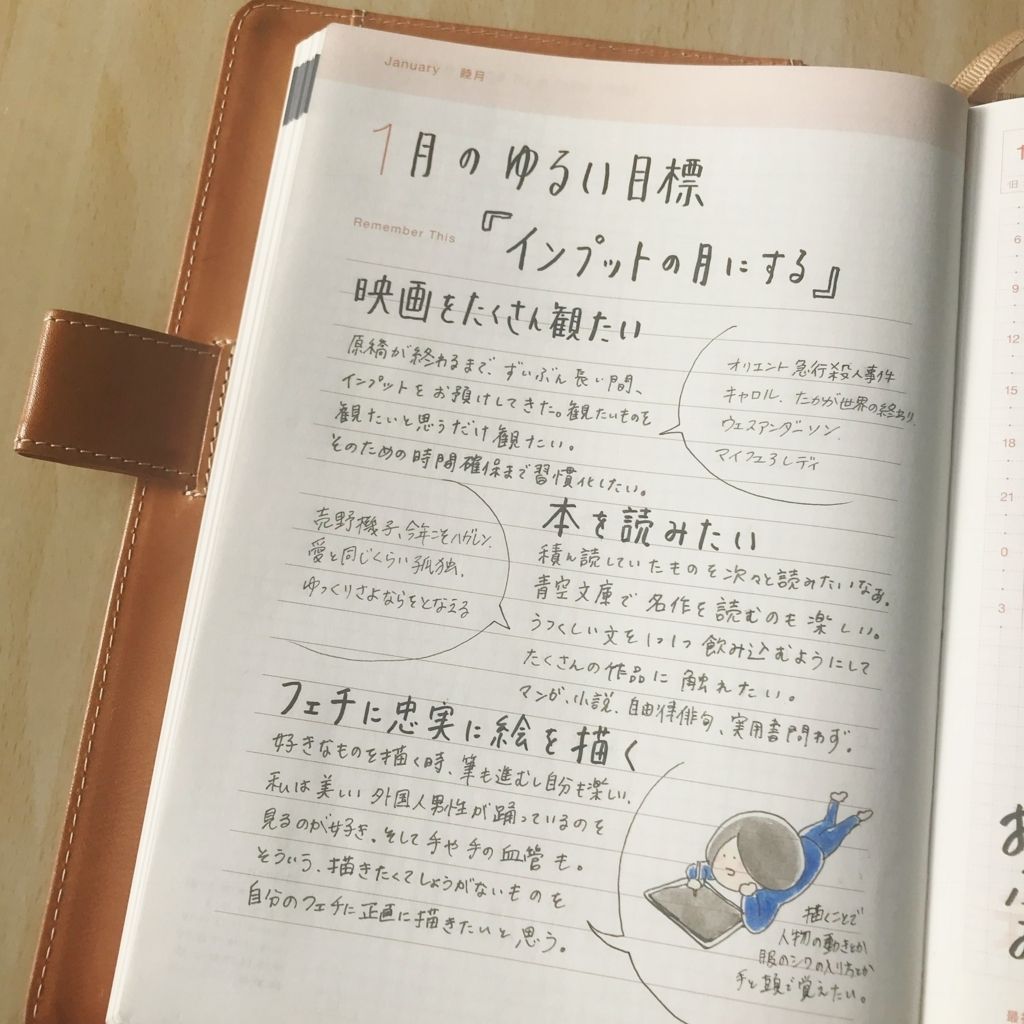 January 睦月
1月のゆるい目標
Remember This
『インプットの月にする』
映画をたくさん観たい
原稿が終わるまで、ずいぶん長い間、
インプットをお預けしてきた。観たいものを
観たいと思うだけ観たい。
そのための時間確保まで習慣化したい。
オリエント急行殺人事件
キャロル、たかが世界の終わり、
ウェスアンダーソン、
マイフェアレディ
本を読みたい
積ん読していたものを次々と読みたいなあ。
青空文庫で名作を読むのも楽しい。
うつくしい文を1つ1つ飲み込むようにして
たくさんの作品に触れたい。
マンガ、小説、自由律俳句、実用書問わず。
売野機子、今年こそハガレン、
愛と同じくらい孤独、
ゆっくりさよならをとなえる
フェチに忠実に絵を描く
好きなものを描く時、筆も進むし自分も楽しい、
私は美しい外国人男性が踊っているのを
見るのが好き。そして手や手の血管も。
そういう、描きたくてしょうがないものを
自分のフェチに正直に描きたいと思う。
描くことで
人物の動きとか
服のシワの入り方とか
手と頭で覚えたい。
6
9
12
15
18
21
0
3